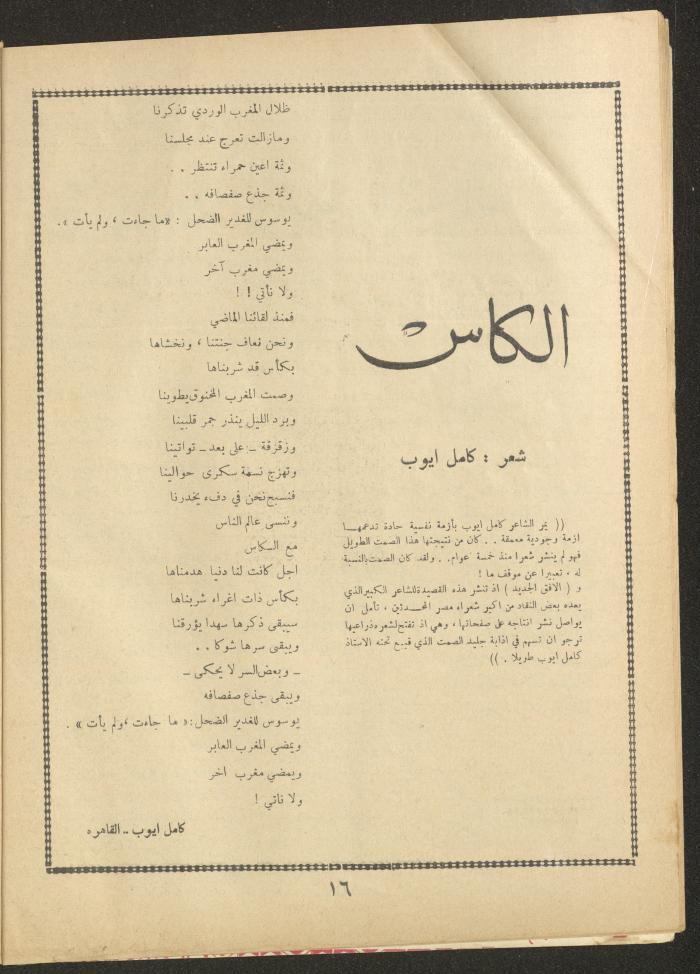 الكاس
شعر : كامل ايوب
(( يمر الشاعر كامل ايوب بأزمة نفسية حادة تدعمهـا
ازمة وجودية معمقة . . كان من نتيجتها هذا الصمت الطويل
فهو لم ينشر شعرا منذ خمسة عوام. . ولقد كان الصمت بالنسبة
له ، تعبيرا عن موقف ما !
و ( الافق الجديد ) اذ تنشر هذه القصيدة للشاعر الكبير الذي
يعده بعض النقاد من اكبر شعراء مصر المحدثين ، تأمل ان
يواصل نشر انتاجه على صفحاتها ، وهي اذ تفتح لشعره ذراعيها
ترجو ان تسهم في اذابة جليد الصمت الذي قبع تحته الاستاذ
كامل ايوب طويلا . ))
ظلال المغرب الوردي تذكرنا
ومازالت تعرج عند مجلسنا
وثمة اعين حمراء تنتظر . .
وثمة جذع صفصافه . .
يوسوس للغدير الضحل : «ما جاءت ، ولم يأت ».
ويمضي المغرب العابر
ويمضي مغرب آخر
ولا نأتي ! !
فمنذ لقائنا الماضي
ونحن نعاف جنتنا ، ونخشاها
بكأس قد شربناها
وصمت المغرب المخنوق يطوينا
وبرد الليل ينذر جمر قلبينا
وزقزقة ــ على بعد ــ تواتينا
وتهزج نسمة سكرى حوالينا
فنسبح نحن في دفء يخدرنا
وننسى عالم الناس
مع الكاس
اجل كانت لنا دنيا هدمناها
بكأس ذات اغراء شربناها
سيبقى ذكرها سهدا يؤرقنا
ويبقى سرها شوكا . .
ــ وبعض السر لا يحكى ــ
ويبقى جذع صفصافه
يوسوس للغدير الضحل: « ما جاءت ،ولم يأت » .
ويمضي المغرب العابر
ويمضي مغرب اخر
ولا ناتي !
كامل ايوب .. القاهره
١٦